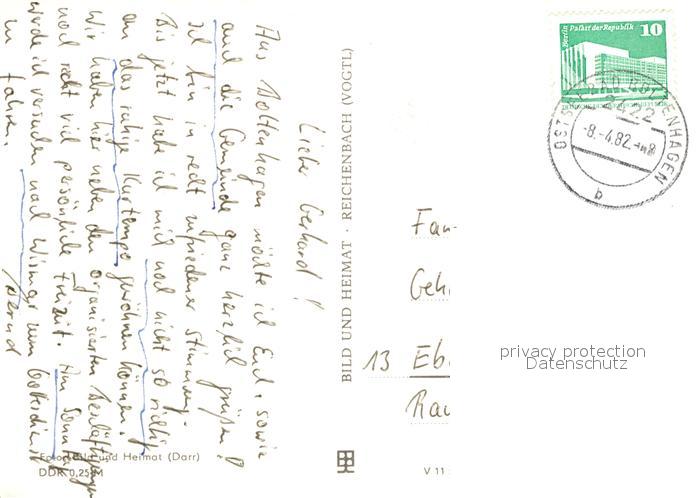 Lieber Gerhard!
Aus Boltenhagen möchte ich Euch, sowie
auch die Gemeinde ganz herzlich grüßen!
Ich bin in recht zufriedener Stimmung.
Bis jetzt habe ich mich noch nicht so richtig
an das ruhige Kurtempo gewöhnen können.
Wir haben hier neben den organisierten Beschäftigungen
noch recht viel persönliche Freizeit. Am Sonntag
werde ich versuchen, nach Wismar zum Gottesdienst
zu fahren.
Bernd
Foto: Bild und Heimat (Darr)
DDR 0,25 M
BILD UND HEIMAT · REICHENBACH (VOGTL)
V 11
Berlin Palast der Republik
10
OSTSEEBAD BOLTENHAGEN
2422
-8.-4.82
b
Fam
Geh
13 Eb
Rau
privacy protection
Datenschutz